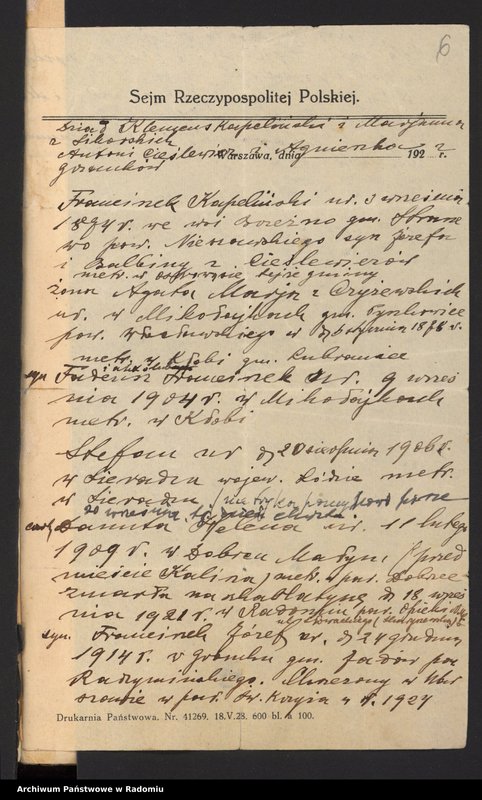 6
Sejm Rzeczypospolitej Polskiej.
Dziad Klemens Kapeliński i Marjanna
z Sikorskich
Antoni Cieślewicz i Agnieszka z
Warszawa, dnia 192 r.
Franciszek Kapeliński ur. 3 września
1874 r. we wsi gm.
wo pow. Nieszawskiego syn Józefa
i Balbiny z Cieślewiczów
metr. w tejże gminy
żona Agata Marja z Czyżewskich
ur. w Mikołajkach gm.
pow. w d. 6 stycznia 1878 r.
metr. w Kłobi gm. Lubraniec
syn Tadeusz Franciszek ur. 9 wrześ
nia 1904 r. w Mikołajkach
metr. w Kłobi
Stefan ur. d. 20 sierpnia 1906 r.
w Sieradzu wojew. Łódzkie metr.
w Sieradzu
20 września
Danuta Helena ur. 11 lutego
1909 r. w Dobrcu Małym (przed
mieście Kalisza) metr. w par. Dobrzec
zmarła na d. 18 wrześ
nia 1921 r. w Radomiu par. Opieki
syn. Franciszek Józef ur. d. 24 grudnia
1914 r. w gm. Jadów pow.
Radzymińskiego. Chrzczony w War
szawie w par. Św. Krzyża w r. 1924
Drukarnia Państwowa. Nr. 41269. 18.V.23. 600 bl. à 100.
Archiwum Państwowe w Radomiu